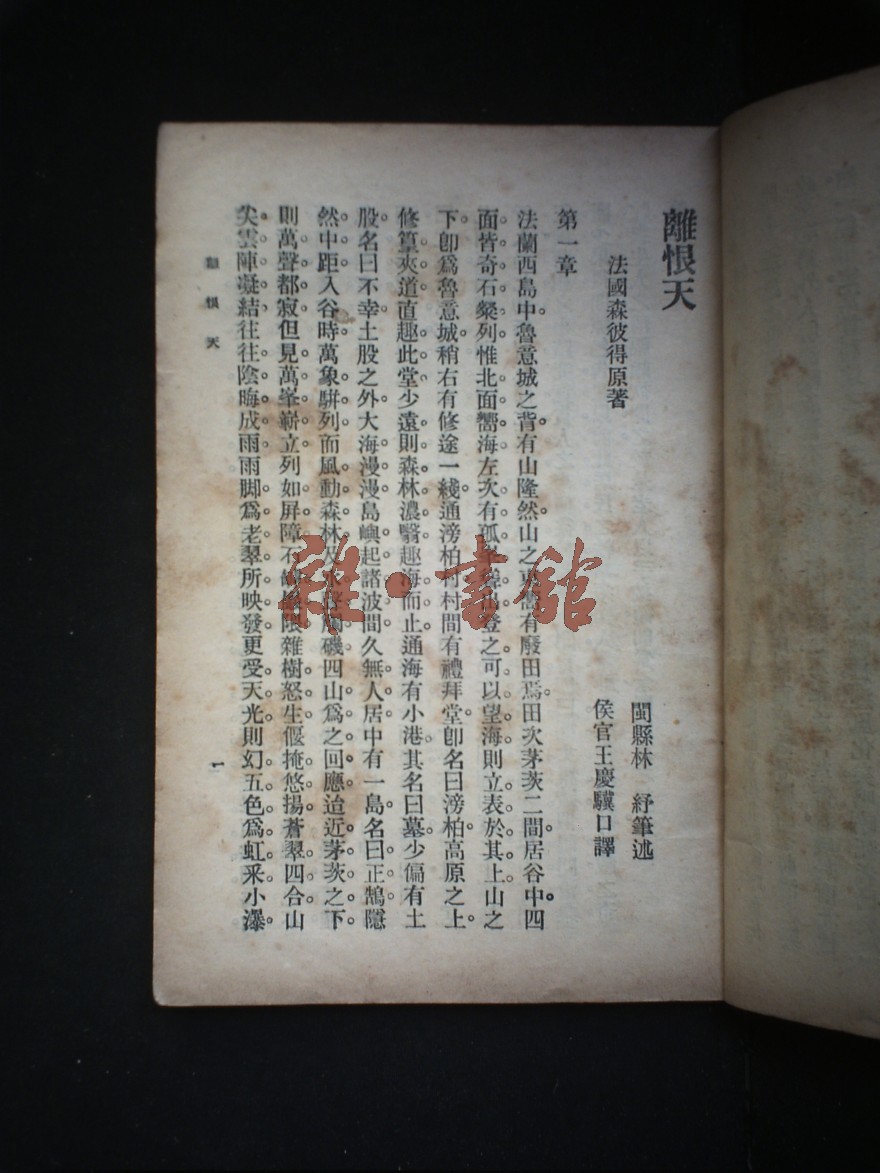 離恨天
法國森彼得原著
閩縣林　紓筆述
侯官王慶驥口譯
第一章
法蘭西島中。魯意城之背。有山隆然。山之東。有廢田焉。田次茅茨二間。居谷中。四
面皆奇石粲列。惟北面嚮海。左次有孤登之可以望海。則立表於其上。山之
下。卽爲魯意城。稍右有修途一綫。通滂柏村。村間有禮拜堂。卽名曰滂柏。高原之上。
修篁夾道。直趣此堂。少遠則森林濃翳。趣海而止。通海有小港。其名曰墓。少偏有土
股。名曰不幸。土股之外。大海漫漫。島嶼起諸波間。久無人居。中有一島。名曰正鵠。隱
然中距。入谷時。萬象駢列。而風動森林。及磯。四山爲之回應。迨近茅茨之下。
則萬聲都寂。但見萬峯嶄立。列如屏障。石雜樹怒生。偃掩悠揚。蒼翠四合。山
尖雲陣凝結。往往陰晦成雨。雨脚爲老翠所映發。更受天光。則幻五色爲虹采。小瀑
離恨天
一
雜·書館